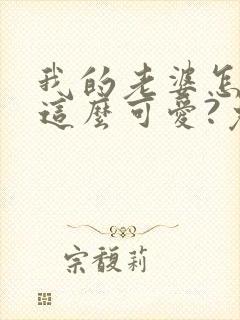 我的老婆怎
這麼可愛?
宗馥莉